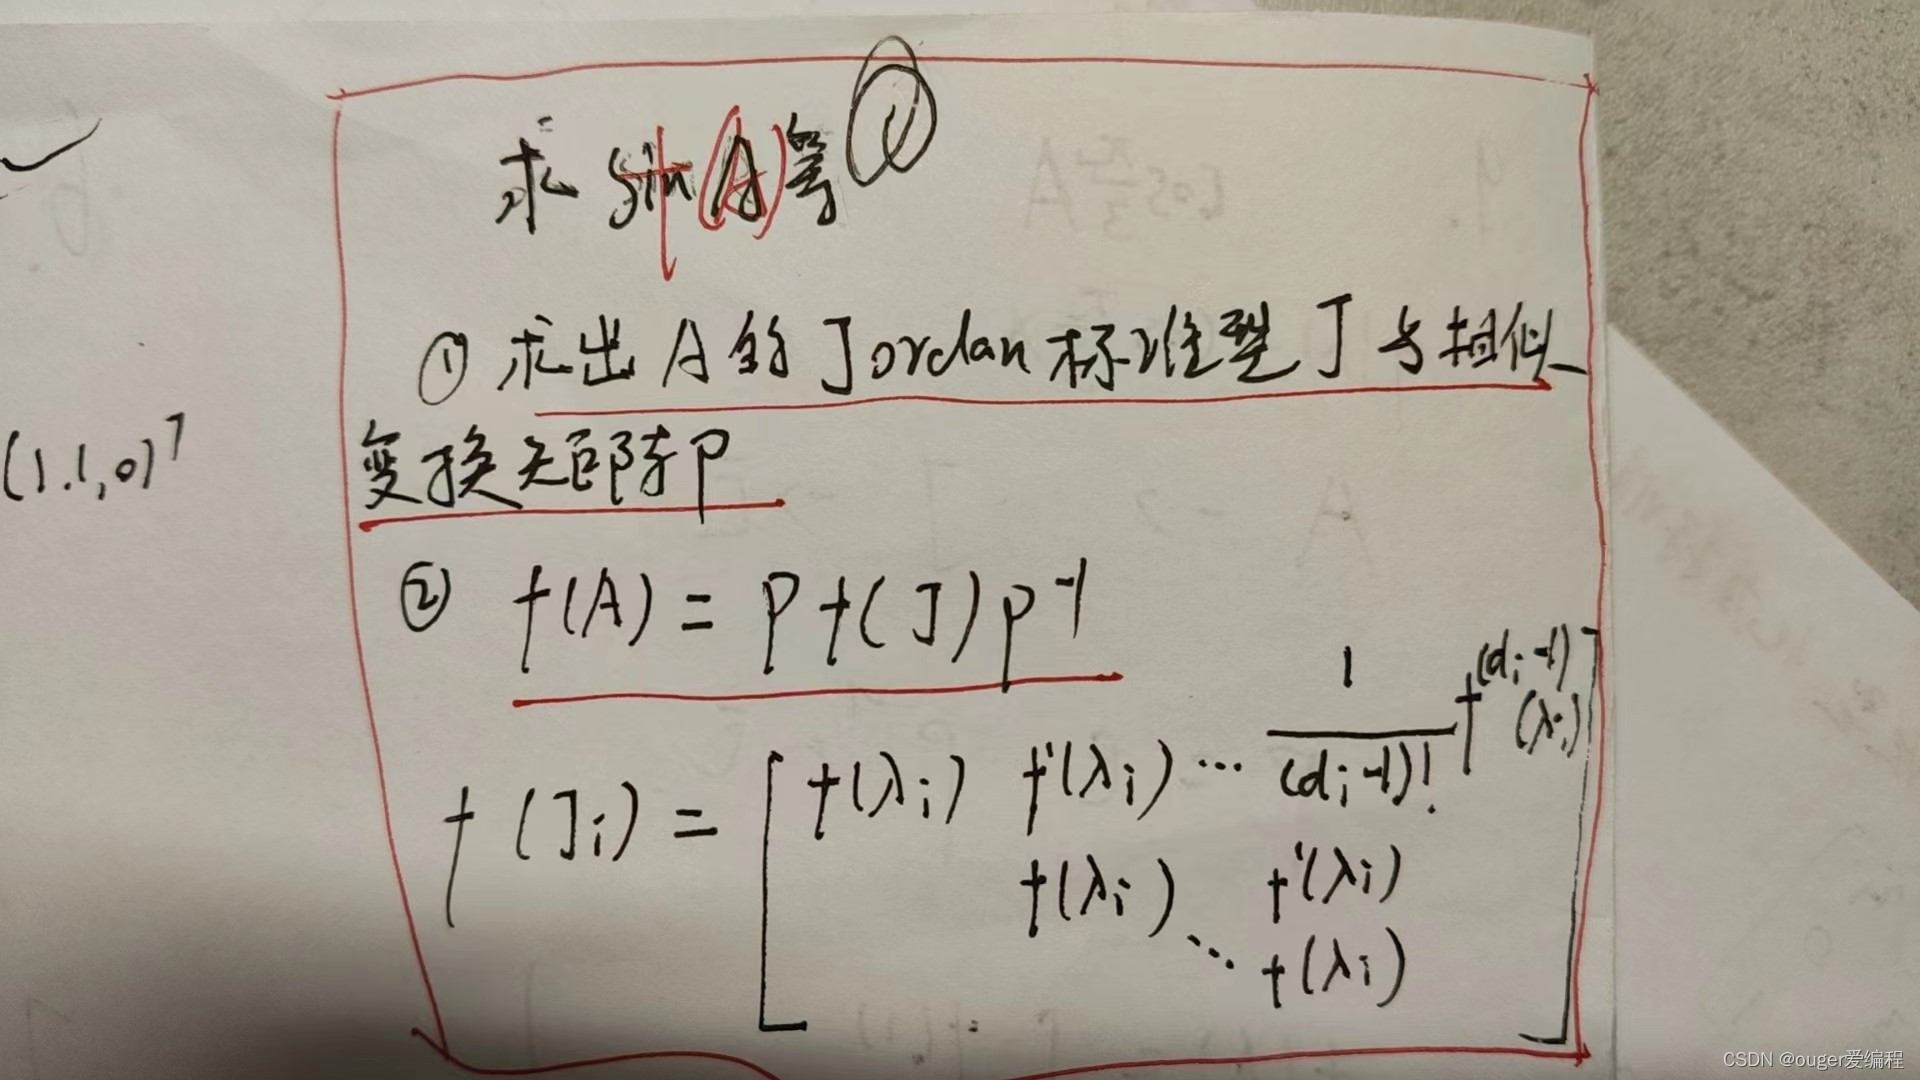 求 sin(A)等
(1,1,0)ᵀ
① 求出 A 的 Jordan 标准型 J 与相似
变换矩阵 P
② f(A) = P f(J) P⁻¹
f(Jᵢ) = [ f(λᵢ) f'(λᵢ) ⋯ 1/(dᵢ-1)! f^(dᵢ-1)(λᵢ)
f(λᵢ) f'(λᵢ)
⋱ f(λᵢ) ]
CSDN @ouger爱编程